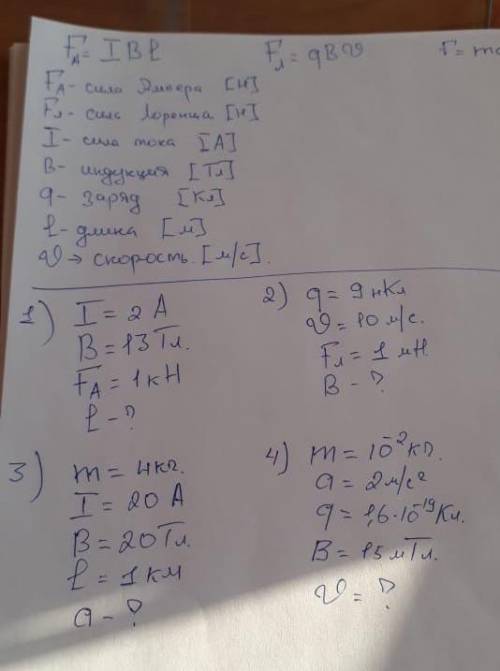 F_A = I B ℓ   F_л = q B v   F = m
F_A - сила Ампера [Н]
F_л - сила Лоренца [Н]
I - сила тока [А]
B - индукция [Тл]
q - заряд [Кл]
ℓ - длина [м]
v → скорость [м/с].
1) I = 2 А
B = 13 Тл.
F_A = 1 кН
ℓ - ?
2) q = 9 нКл
v = 10 м/с.
F_л = 1 мН
B - ?
3) m = 4 кг.
I = 20 А
B = 20 Тл.
ℓ = 1 км
a - ?
4) m = 10⁻² кг.
a = 2 м/с²
q = 1,6·10⁻¹⁹ Кл.
B = 15 мТл.
v = ?